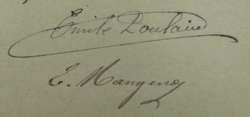 Emile Poulain
E. Mangeno